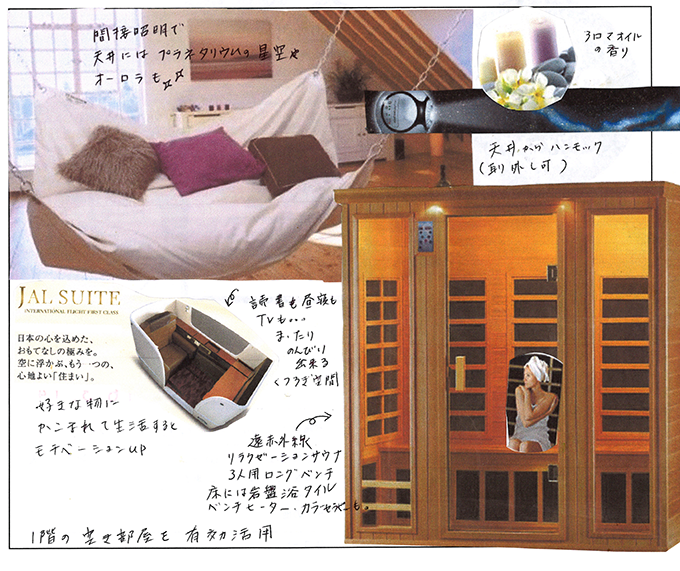 間接照明で
天井には プラネタリウムの星空☆
オーロラも☆☆
アロマオイル
の香り
天井からハンモック
(取外し可)
JAL SUITE
INTERNATIONAL FLIGHT FIRST CLASS
日本の心を込めた、
おもてなしの極みを。
空に浮かぶ、もう一つの、
心地よい「住まい」。
読書も昼寝も
TVも。。。
まったり
のんびり
出来る
くつろぎ空間
好きな物に
かこまれて生活すると
モチベーションup
遠赤外線
リラクゼーションサウナ
3人用ロングベンチ
床には岩盤浴タイル
ベンチヒーター・カラーセラピーも。
1階の空き部屋を有効活用